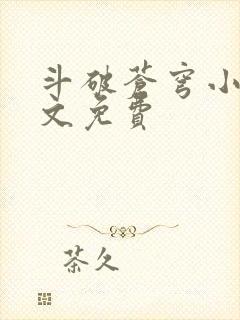 斗破苍穹小
文免費
茶久